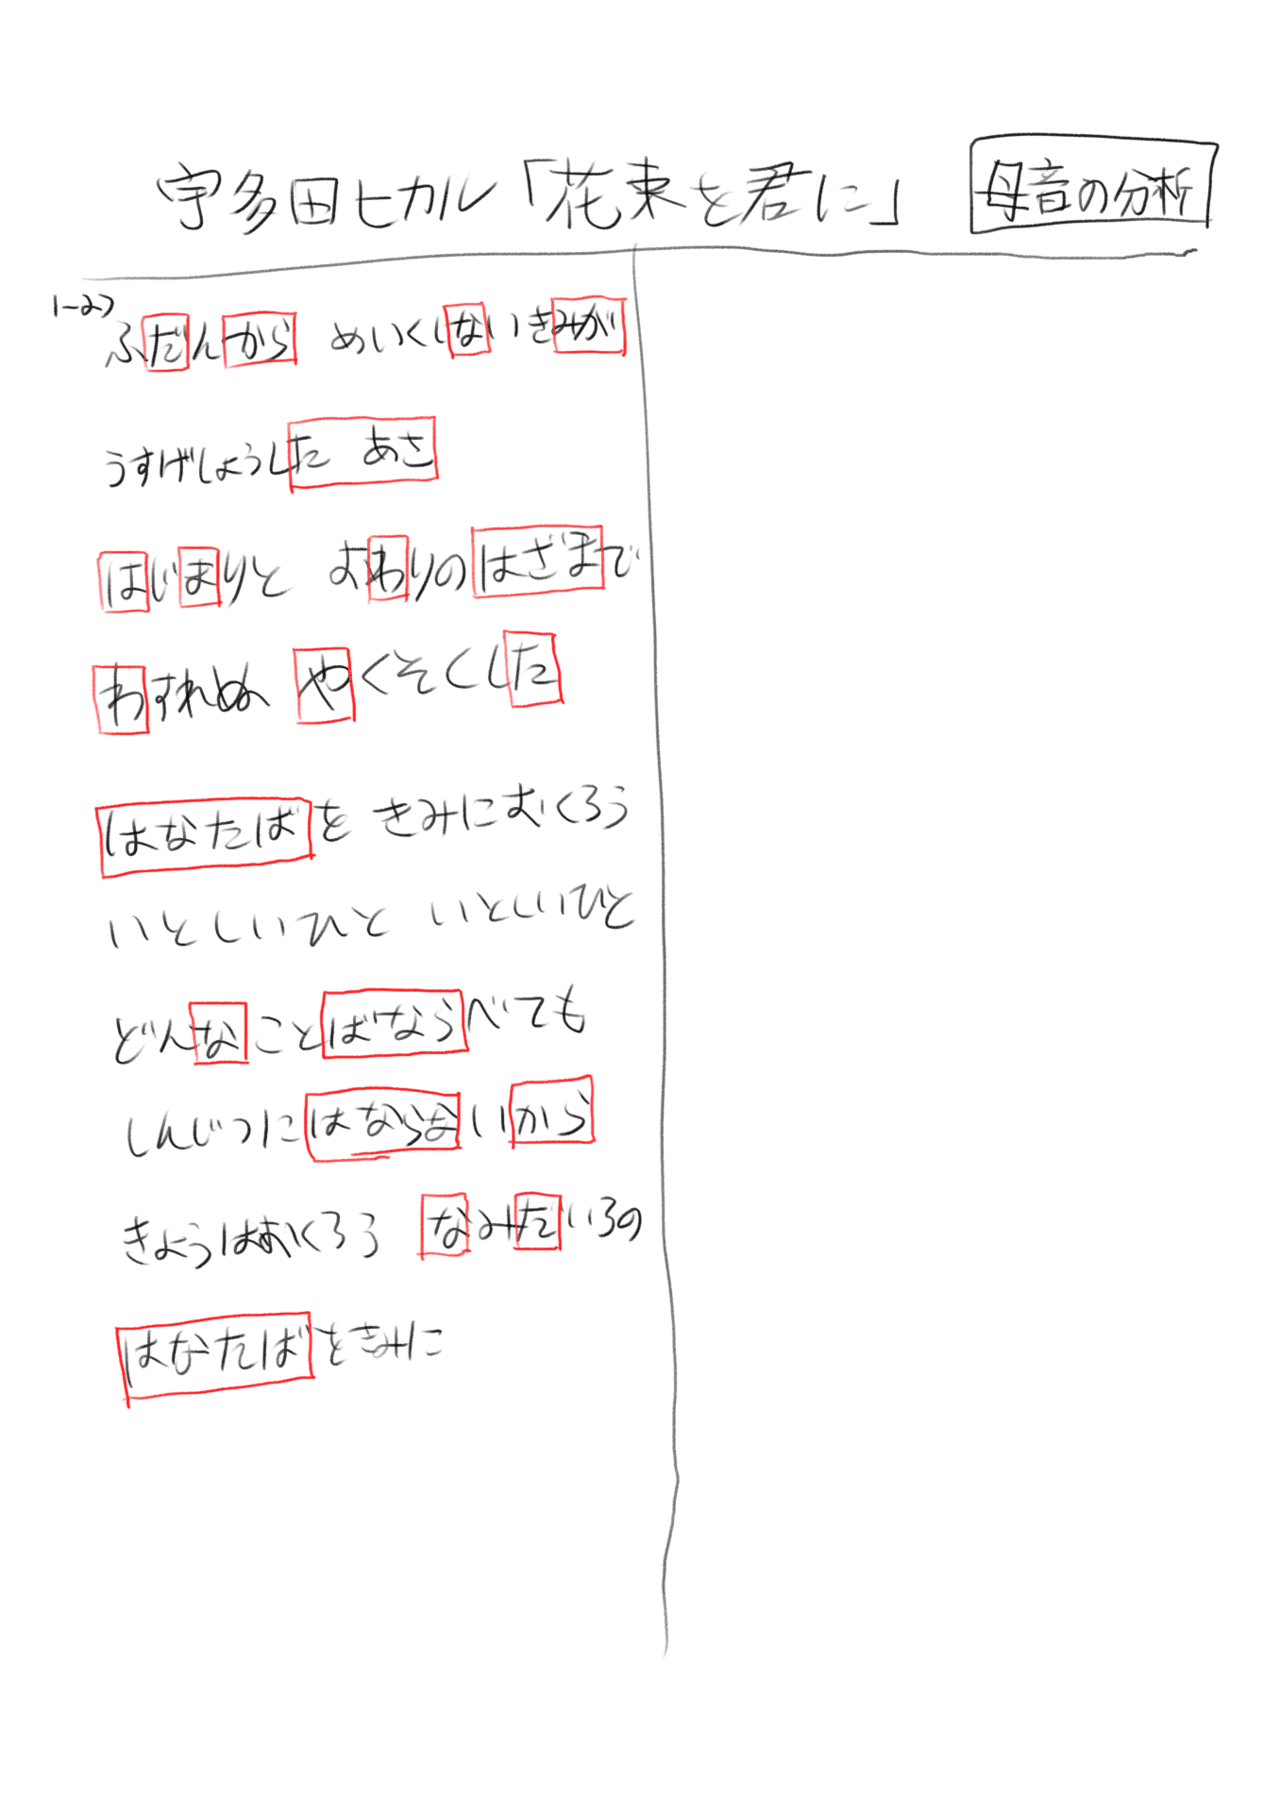 宇多田ヒカル「花束を君に」 母音の分析
ふだんから めいくしないきみが
うすげしょうした あさ
はじまりと おわりのはざまで
わすれぬ やくそくした
はなたばを きみにおくろう
いとしいひと いとしいひと
どんなことばならべても
しんじつにはならないから
きょうはおくろう なみだいろの
はなたばをきみに